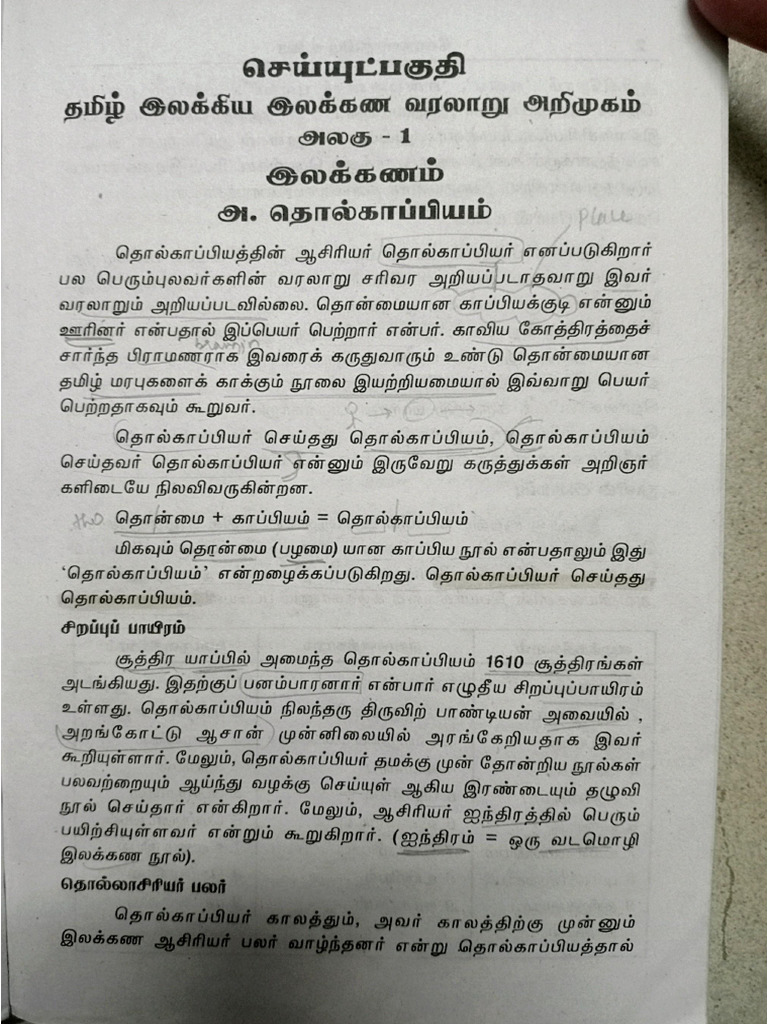 செய்யுட்பகுதி
தமிழ் இலக்கிய இலக்கண வரலாறு அறிமுகம்
அலகு - 1
இலக்கணம்
அ. தொல்காப்பியம்
place
தொல்காப்பியத்தின் ஆசிரியர் தொல்காப்பியர் எனப்படுகிறார்
பல பெரும்புலவர்களின் வரலாறு சரிவர அறியப்படாதவாறு இவர்
வரலாறும் அறியப்படவில்லை. தொன்மையான காப்பியக்குடி என்னும்
ஊரினர் என்பதால் இப்பெயர் பெற்றார் என்பர். காவிய கோத்திரத்தைச்
சார்ந்த பிராமணராக இவரைக் கருதுவாரும் உண்டு தொன்மையான
தமிழ் மரபுகளைக் காக்கும் நூலை இயற்றியமையால் இவ்வாறு பெயர்
பெற்றதாகவும் கூறுவர்.
தொல்காப்பியர் செய்தது தொல்காப்பியம், தொல்காப்பியம்
செய்தவர் தொல்காப்பியர் என்னும் இருவேறு கருத்துக்கள் அறிஞர்
களிடையே நிலவிவருகின்றன.
தொன்மை + காப்பியம் = தொல்காப்பியம்
மிகவும் தொன்மை (பழமை) யான காப்பிய நூல் என்பதாலும் இது
‘தொல்காப்பியம்’ என்றழைக்கப்படுகிறது. தொல்காப்பியர் செய்தது
தொல்காப்பியம்.
சிறப்புப் பாயிரம்
சூத்திர யாப்பில் அமைந்த தொல்காப்பியம் 1610 சூத்திரங்கள்
அடங்கியது. இதற்குப் பனம்பாரனார் என்பார் எழுதீய சிறப்புப்பாயிரம்
உள்ளது. தொல்காப்பியம் நிலந்தரு திருவிற் பாண்டியன் அவையில் ,
அறங்கோட்டு ஆசான் முன்னிலையில் அரங்கேறியதாக இவர்
கூறியுள்ளார். மேலும், தொல்காப்பியர் தமக்கு முன் தோன்றிய நூல்கள்
பலவற்றையும் ஆய்ந்து வழக்கு செய்யுள் ஆகிய இரண்டையும் தழுவி
நூல் செய்தார் என்கிறார். மேலும், ஆசிரியர் ஐந்திரத்தில் பெரும்
பயிற்சியுள்ளவர் என்றும் கூறுகிறார். (ஐந்திரம் = ஒரு வடமொழி
இலக்கண நூல்).
தொல்லாசிரியர் பலர்
தொல்காப்பியர் காலத்தும், அவர் காலத்திற்கு முன்னும்
இலக்கண ஆசிரியர் பலர் வாழ்ந்தனர் என்று தொல்காப்பியத்தால்